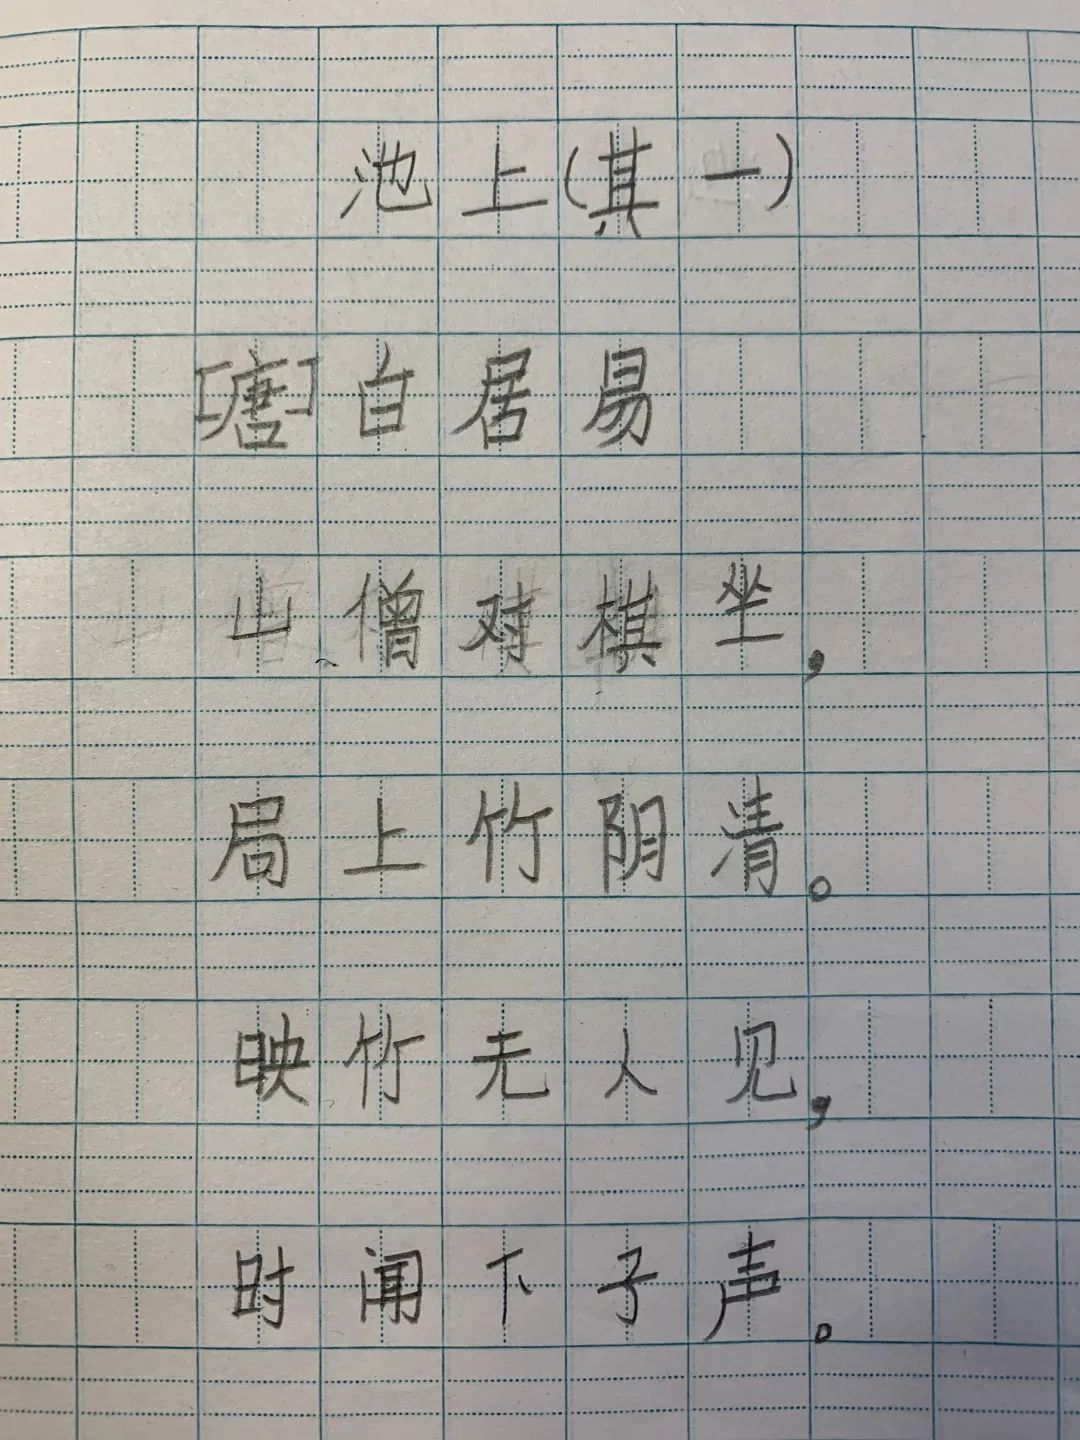 池上(其一)
[唐]白居易
山僧对棋坐，
局上竹阴清。
映竹无人见，
时闻下子声。